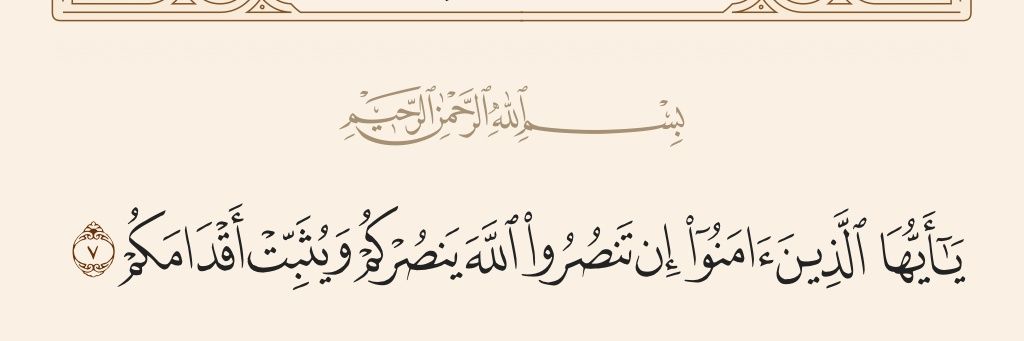 بِسْمِ ٱللَّهِ ٱلرَّحْمَٰنِ ٱلرَّحِيمِ
يَٰٓأَيُّهَا ٱلَّذِينَ ءَامَنُوٓا۟ إِن تَنصُرُوا۟ ٱللَّهَ يَنصُرْكُمْ وَيُثَبِّتْ أَقْدَامَكُمْ ٧